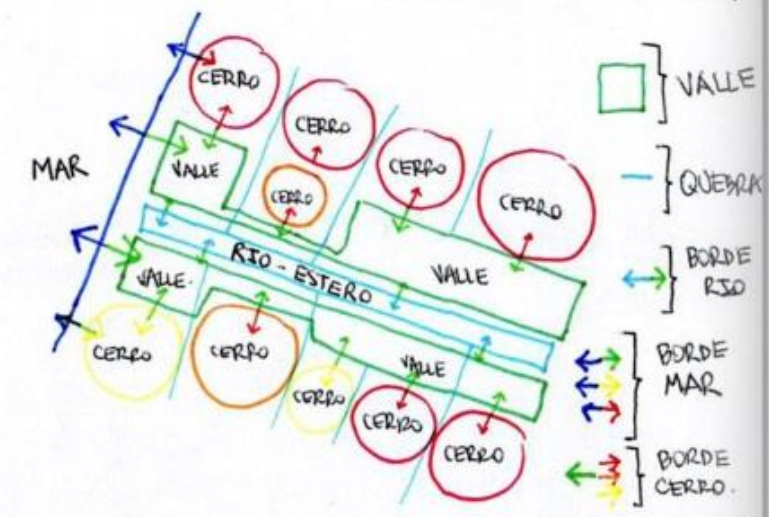 CERRO
CERRO
CERRO
CERRO
CERRO
VALLE
MAR
RIO - ESTERO
VALLE
VALLE.
VALLE
CERRO
CERRO
CERRO
CERRO
CERRO
VALLE
QUEBRA
BORDE
RIO
BORDE
MAR
BORDE
CERRO.